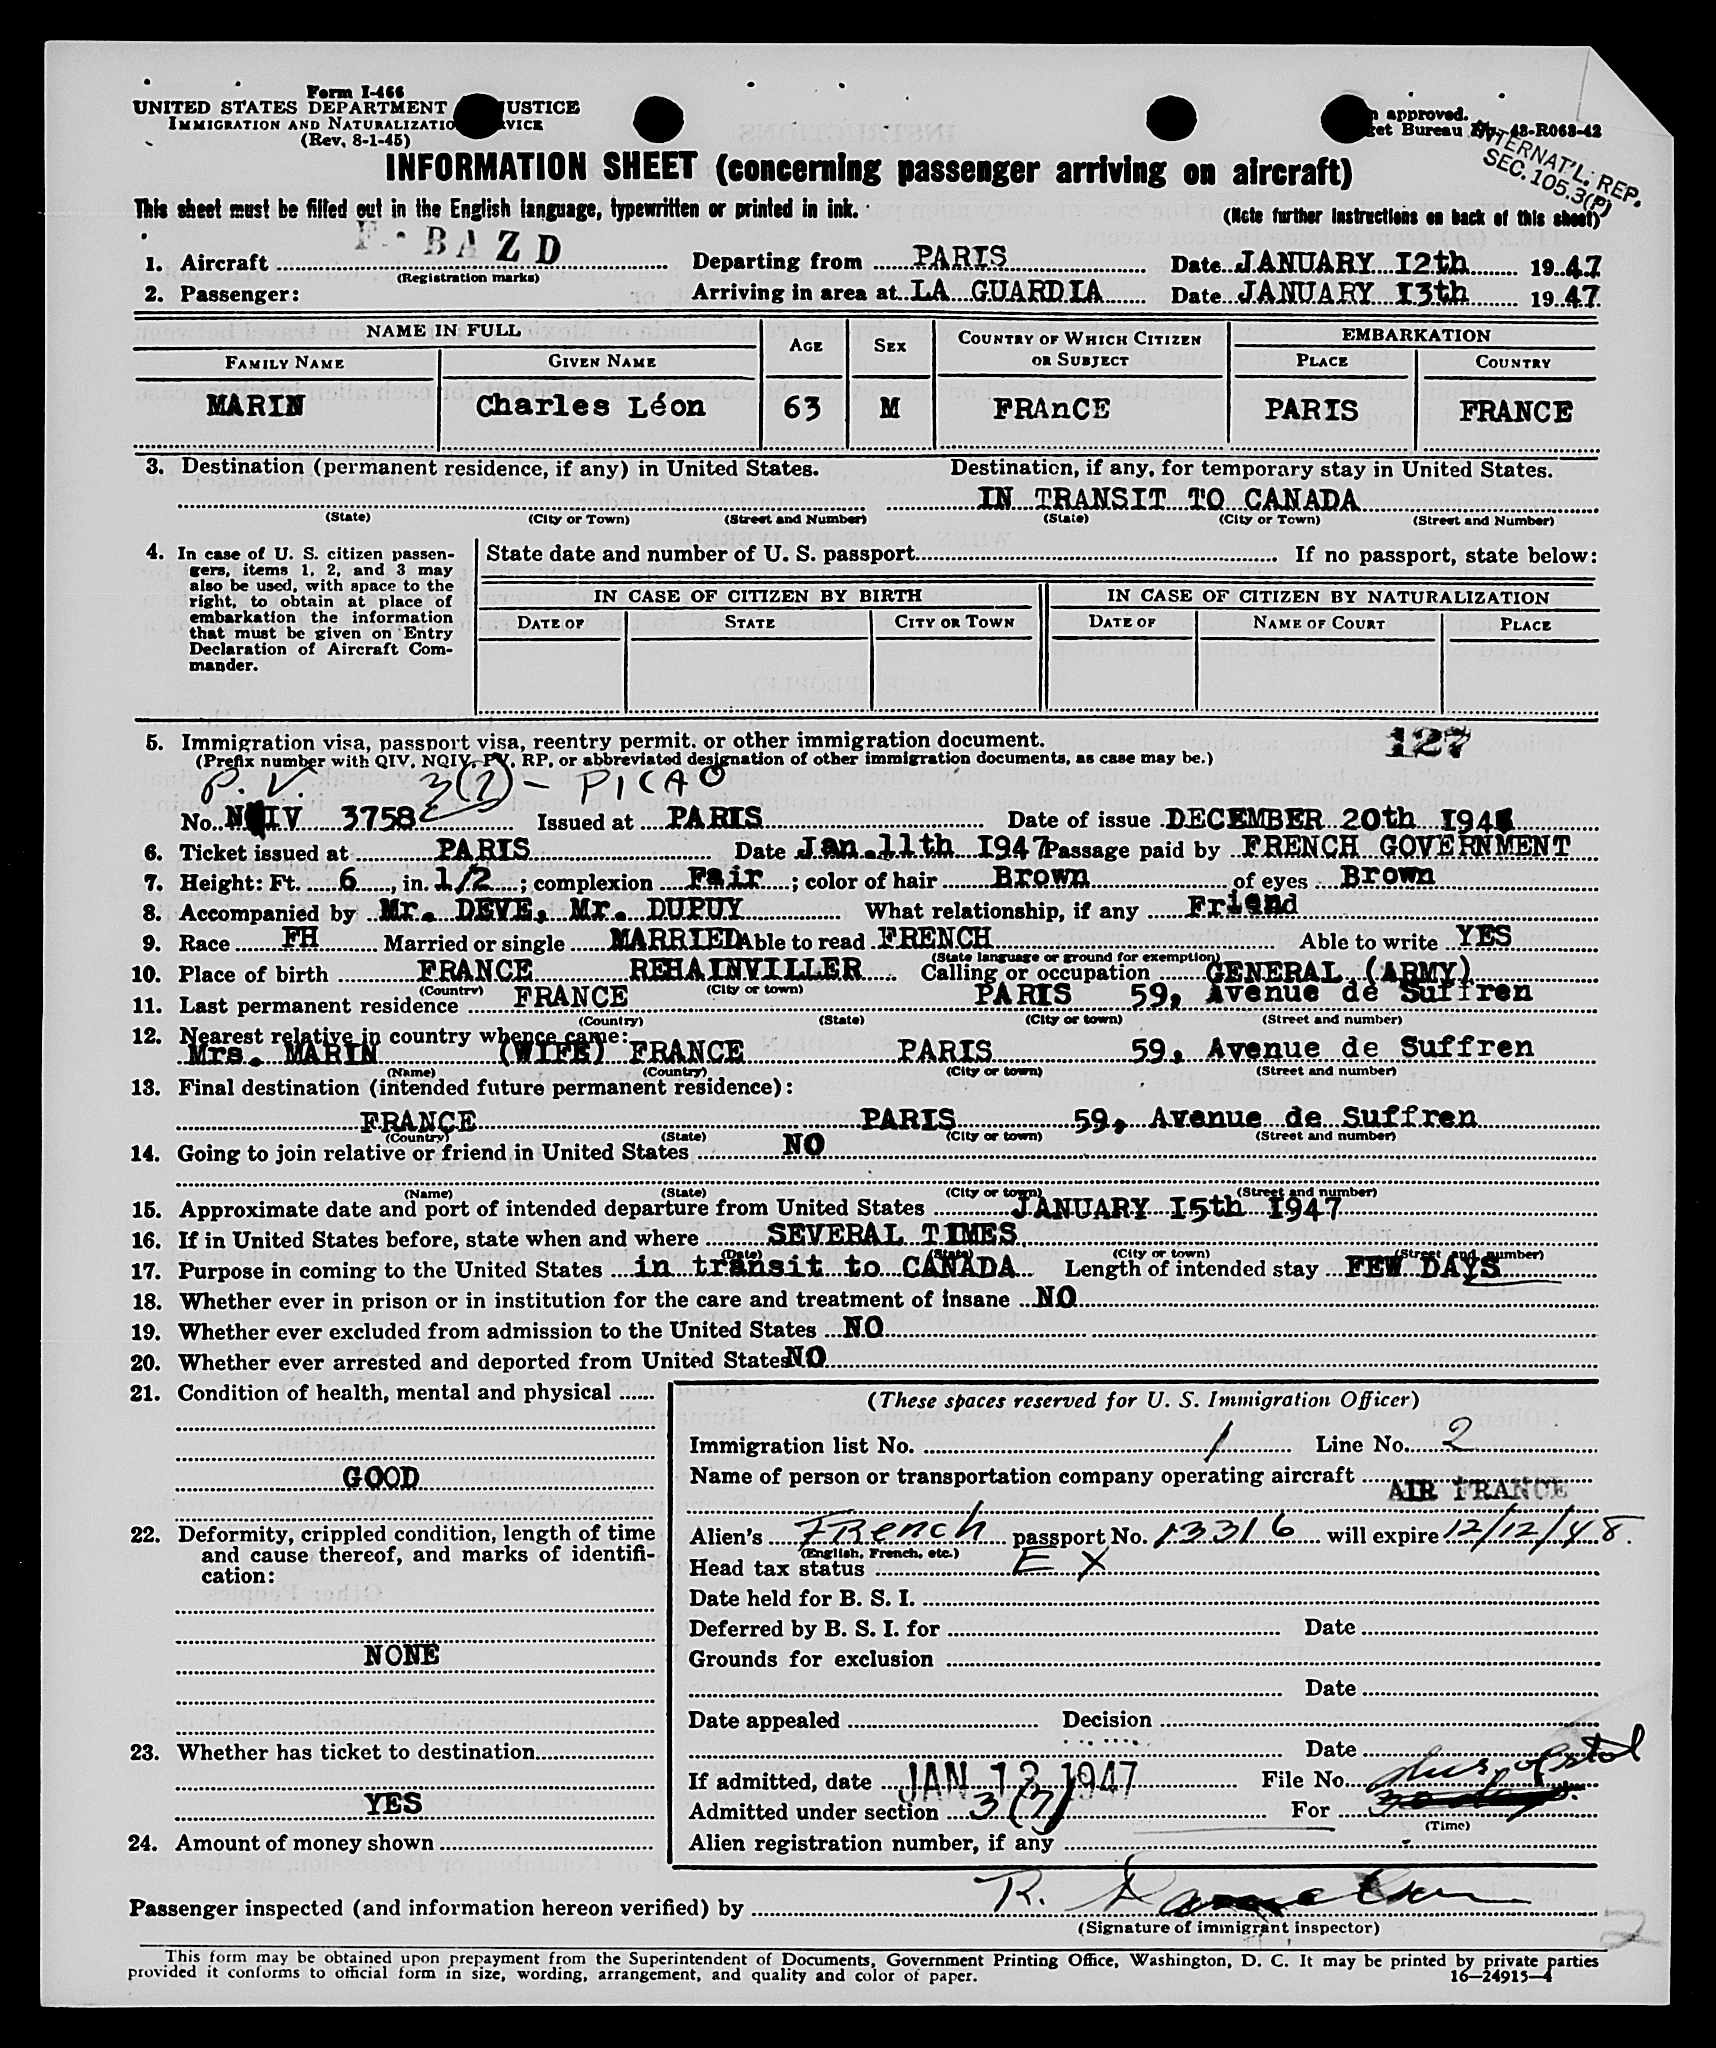 Form I-466
UNITED STATES DEPARTMENT USTICE
IMMIGRATION AND NATURALIZATIO RVICE
(Rev. 8-1-45)
approved.
get Bureau No. 43-R063-42
INTERNAT'L. REP.
SEC. 105.3(P)
INFORMATION SHEET (concerning passenger arriving on aircraft)
This sheet must be filled out in the English language, typewritten or printed in ink.
(Note further instructions on back of this sheet)
1. Aircraft F-BAZD Departing from PARIS Date JANUARY 12th 1947
(Registration marks)
2. Passenger: Arriving in area at LA GUARDIA Date JANUARY 13th 1947
NAME IN FULL AGE SEX COUNTRY OF WHICH CITIZEN OR SUBJECT EMBARKATION
FAMILY NAME GIVEN NAME PLACE COUNTRY
MARIN Charles Léon 63 M FRAnCE PARIS FRANCE
3. Destination (permanent residence, if any) in United States. Destination, if any, for temporary stay in United States.
IN TRANSIT TO CANADA
(State) (City or Town) (Street and Number) (State) (City or Town) (Street and Number)
4. In case of U. S. citizen passen-
gers, items 1, 2, and 3 may
also be used, with space to the
right, to obtain at place of
embarkation the information
that must be given on Entry
Declaration of Aircraft Com-
mander.
State date and number of U. S. passport If no passport, state below:
IN CASE OF CITIZEN BY BIRTH IN CASE OF CITIZEN BY NATURALIZATION
DATE OF STATE CITY OR TOWN DATE OF NAME OF COURT PLACE
127
5. Immigration visa, passport visa, reentry permit, or other immigration document.
(Prefix number with QIV, NQIV, PV, RP, or abbreviated designation of other immigration documents, as case may be.)
P.V. 3(7) - PICAO
No. IV 3758 Issued at PARIS Date of issue DECEMBER 20th
6. Ticket issued at PARIS Date Jan.11th 1947 Passage paid by FRENCH GOVERNMENT
7. Height: Ft. 6, in. 1/2; complexion Fair; color of hair Brown of eyes Brown
8. Accompanied by Mr. DEVE, Mr. DUPUY What relationship, if any Friend
9. Race FH Married or single MARRIED Able to read FRENCH Able to write YES
(State language or ground for exemption)
10. Place of birth FRANCE REHAINVILLER Calling or occupation GENERAL (ARMY)
(Country) (City or town)
11. Last permanent residence FRANCE PARIS 59, Avenue de Suffren
(Country) (State) (City or town) (Street and number)
12. Nearest relative in country whence came:
Mrs. MARIN (WIFE) FRANCE PARIS 59, Avenue de Suffren
(Name) (Country) (City or town) (Street and number)
13. Final destination (intended future permanent residence):
FRANCE PARIS 59, Avenue de Suffren
(Country) (State) (City or town) (Street and number)
14. Going to join relative or friend in United States NO
(Name) (State) (City or town) (Street and number)
15. Approximate date and port of intended departure from United States JANUARY 15th 1947
16. If in United States before, state when and where SEVERAL TIMES
(Date) (State) (City or town) (Street and number)
17. Purpose in coming to the United States in transit to CANADA Length of intended stay FEW DAYS
18. Whether ever in prison or in institution for the care and treatment of insane NO
19. Whether ever excluded from admission to the United States NO
20. Whether ever arrested and deported from United States NO
21. Condition of health, mental and physical
GOOD
22. Deformity, crippled condition, length of time
and cause thereof, and marks of identifi-
cation:
NONE
23. Whether has ticket to destination
YES
24. Amount of money shown
(These spaces reserved for U. S. Immigration Officer)
Immigration list No. 1 Line No. 2
Name of person or transportation company operating aircraft
AIR FRANCE
Alien's FRench passport No. 13316 will expire 12/12/48.
(English, French, etc.)
Head tax status EX
Date held for B. S. I.
Deferred by B. S. I. for Date
Grounds for exclusion
Date
Date appealed Decision
Date
If admitted, date JAN 13 1947 File No.
Admitted under section 3(7) For
(Time)
Alien registration number, if any
Passenger inspected (and information hereon verified) by R.
(Signature of immigrant inspector)
2
This form may be obtained upon prepayment from the Superintendent of Documents, Government Printing Office, Washington, D. C. It may be printed by private parties
provided it conforms to official form in size, wording, arrangement, and quality and color of paper.
16—24915-4